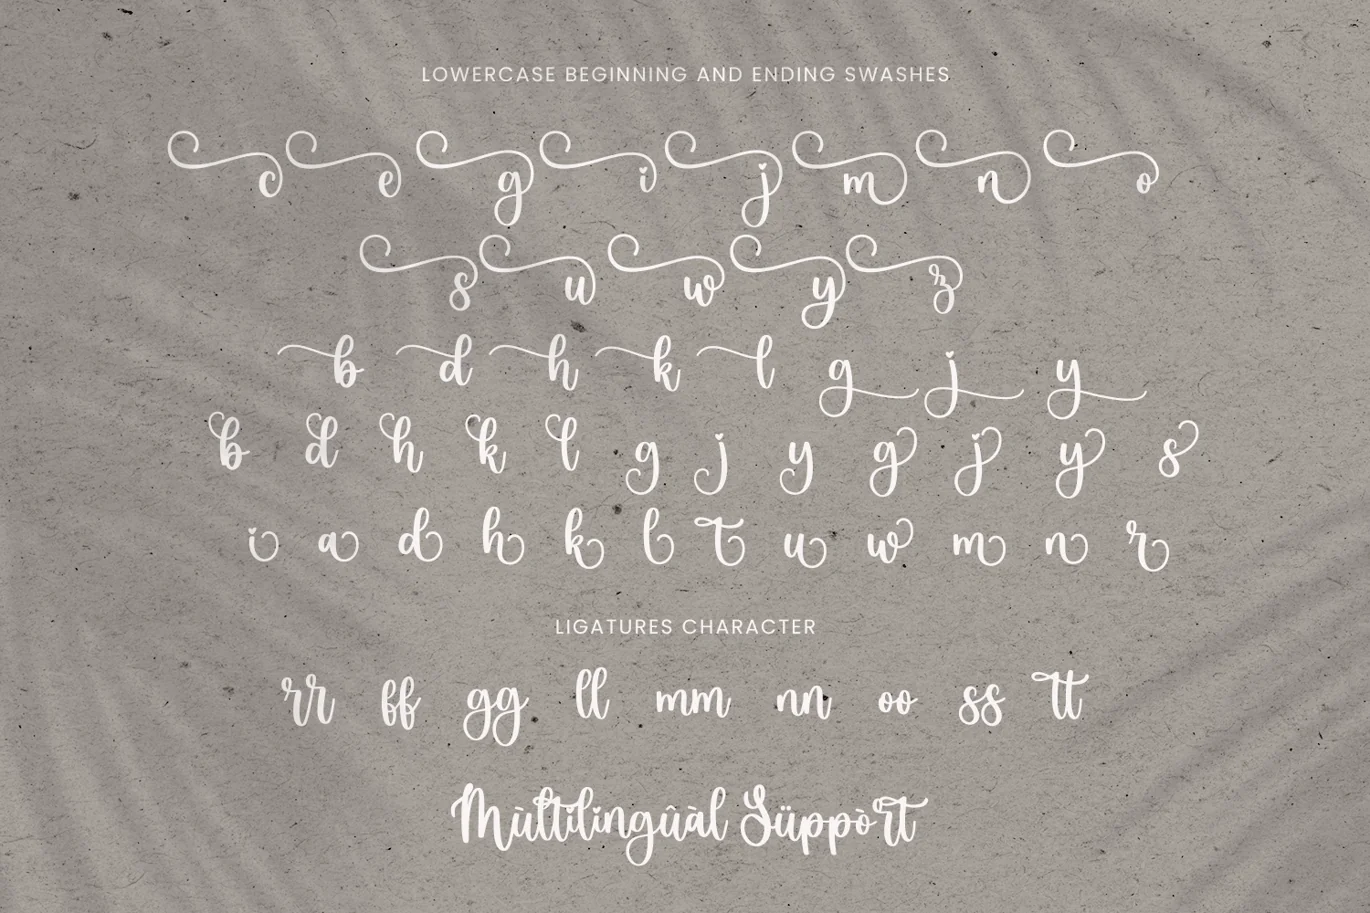 LOWERCASE BEGINNING AND ENDING SWASHES
c e g i j m n o
s u w y z
b d h k l g j y
b d h k l g j y g j y s
i a d h k l t u w m n r
LIGATURES CHARACTER
rr ff gg ll mm nn oo ss tt
Mùltilingûàl Süppòrt